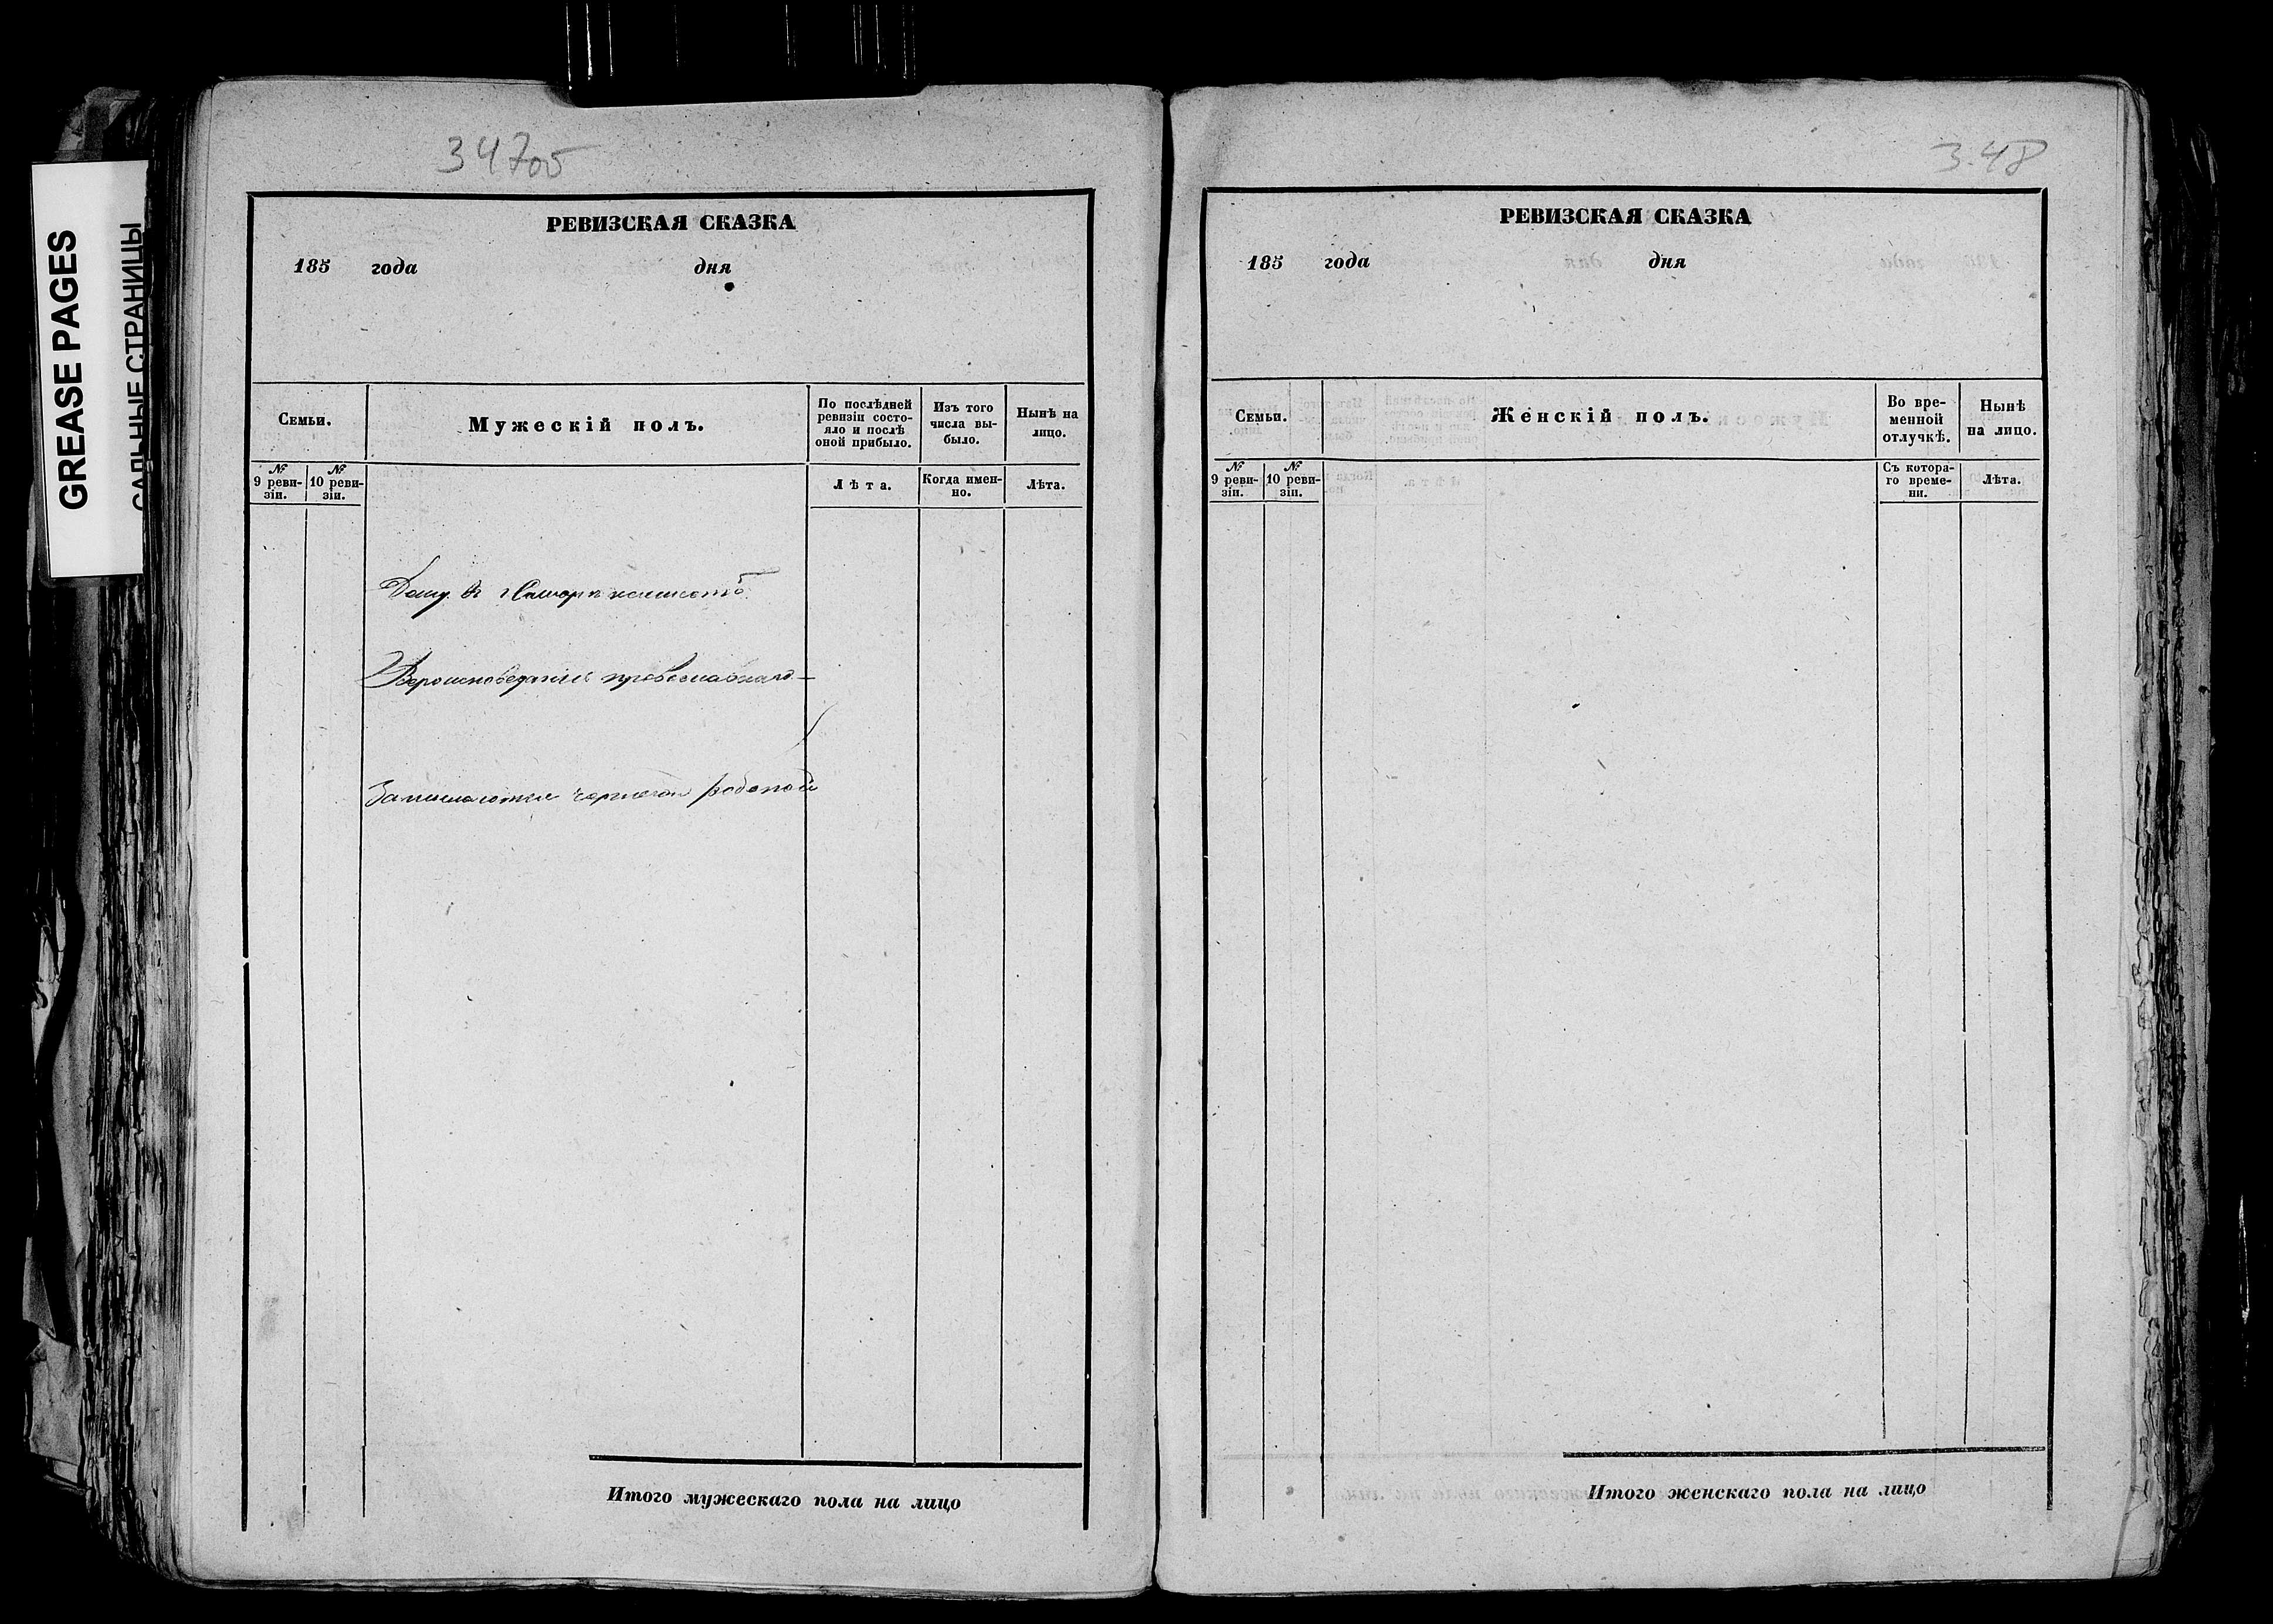 GREASE PAGES
САЛЬНЫЕ СТРАНИЦЫ
347об
РЕВИЗСКАЯ СКАЗКА
185 года дня
Семьи.
Мужескій полъ.
По послѣдней ревизіи состо-
яло и послѣ оной прибыло.
Изъ того числа вы-
было.
Нынѣ на лицо.
№ 9 реви-
зіи.
№ 10 реви-
зіи.
Лѣта.
Когда имен-
но.
Лѣта.
Дому в г Самаре неимеютъ
Вероисповедания православнаго
Занимаются черною работой
Итого мужескаго пола на лицо
348
РЕВИЗСКАЯ СКАЗКА
185 года дня
Семьи.
Женскій полъ.
Во вре-
менной
отлучкѣ.
Нынѣ
на лицо.
№ 9 реви-
зіи.
№ 10 реви-
зіи.
Съ котора-
го време-
ни.
Лѣта.
Итого женскаго пола на лицо